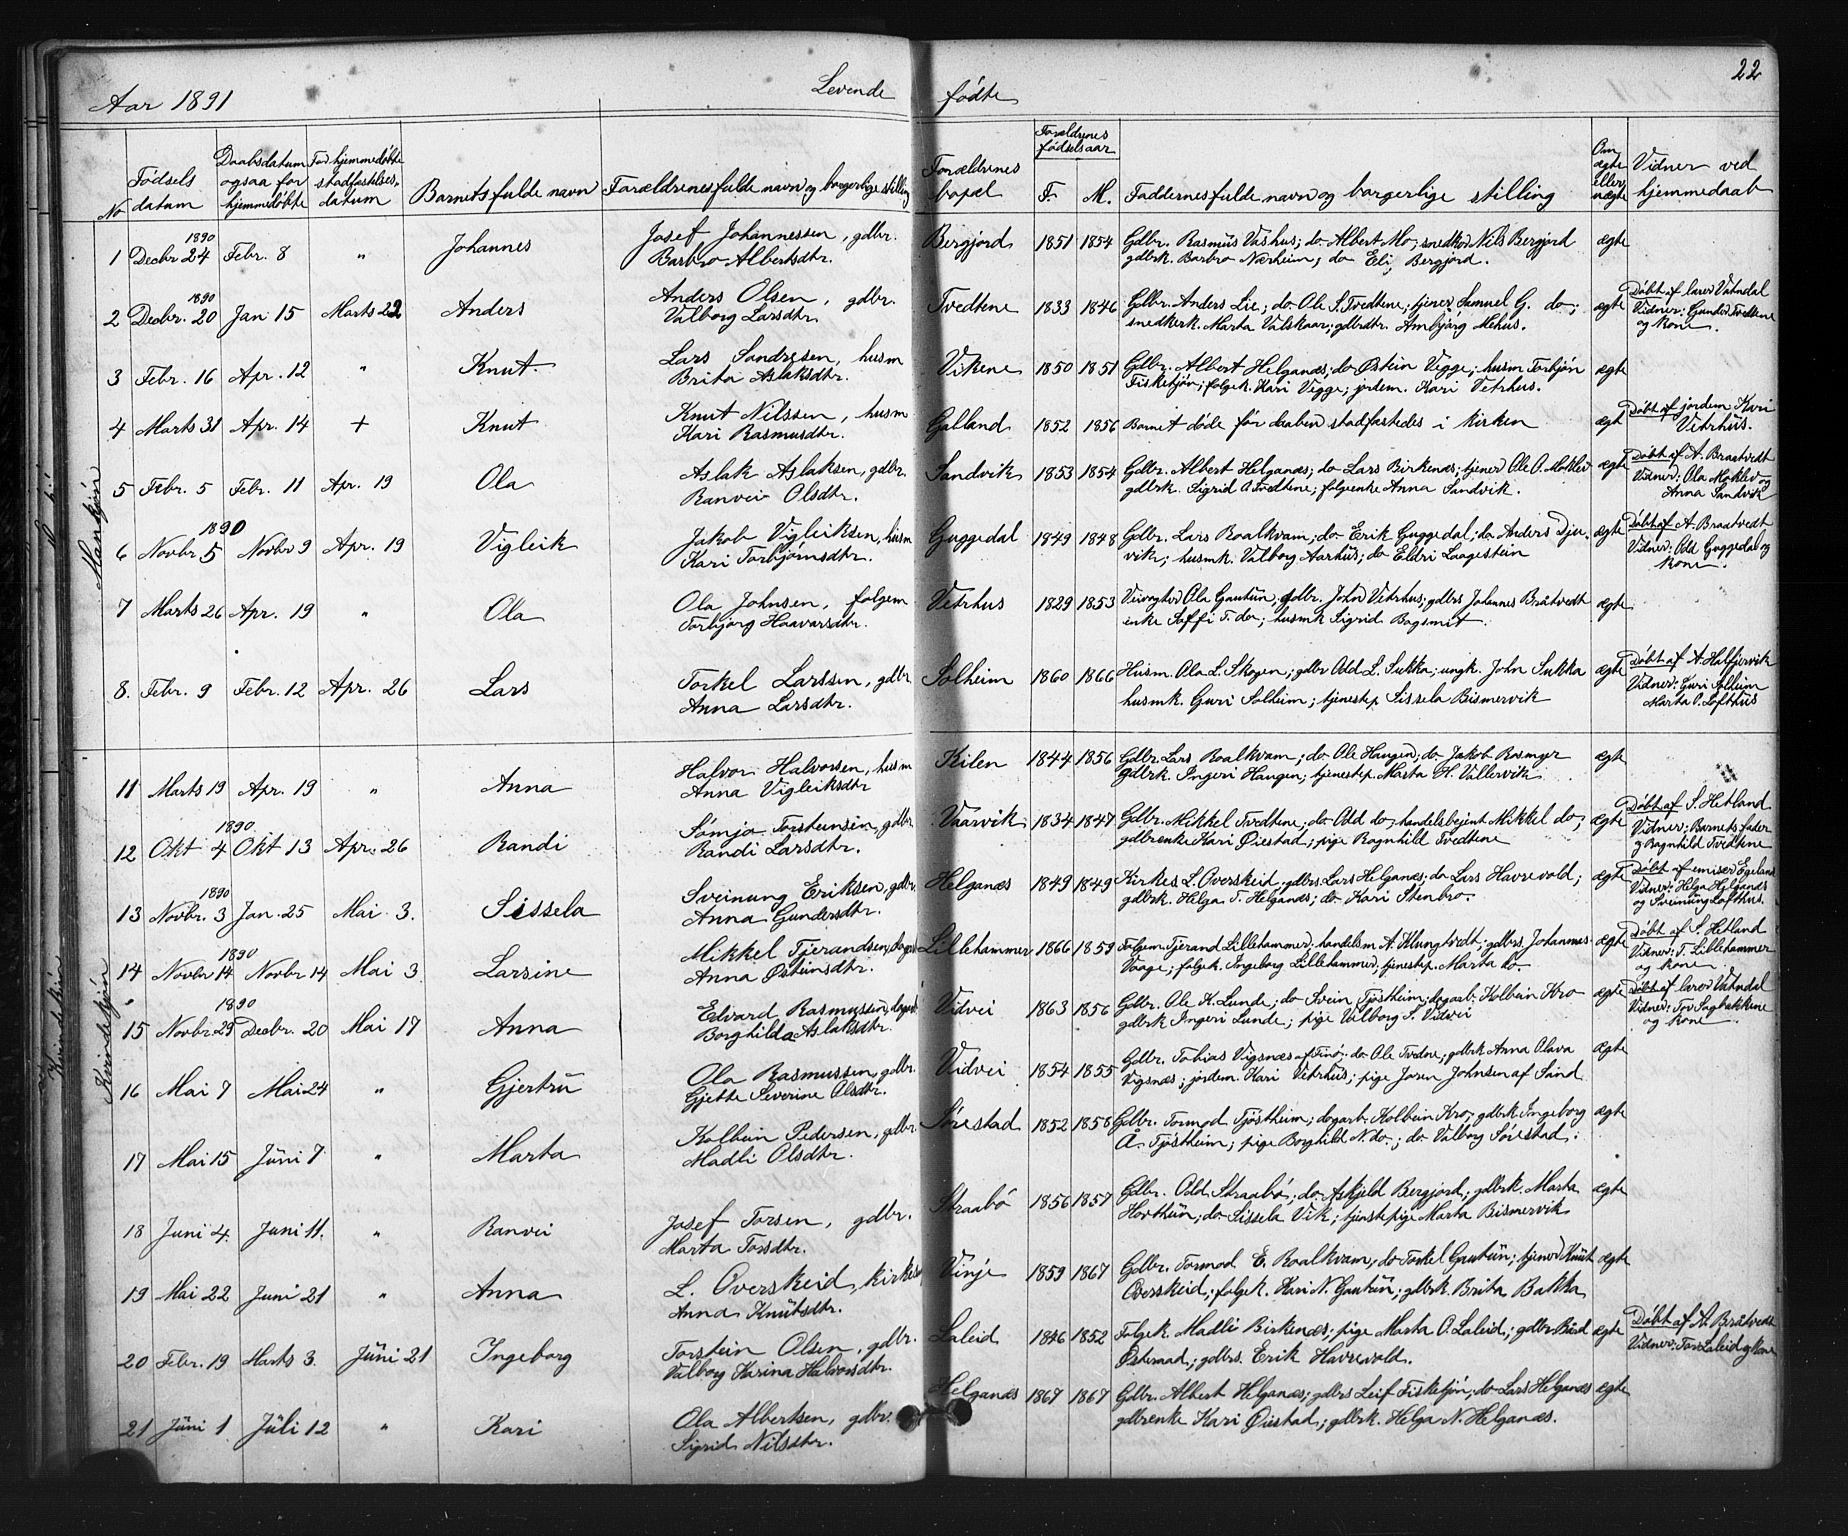 22
Aar 1891
Levende
fødte
No
Fødsels datum
Daabsdatum ogsaa for hjemmedøbte
For hjemmedøbte stadfæstelses-datum
Barnets fulde navn
Forældrenes fulde navn og borgerlige stilling
Forældrenes bopæl
Forældrenes fødselsaar
F.
M.
Faddernes fulde navn og borgerlige stilling
Om ægte eller uægte
Vidner ved hjemmedaab
Mankjøn
1 1890 Decbr 24 Febr. 8 " Johannes Josef Johannessen, gdbr. Bergjord 1851 1854 Gdbr. Rasmus Vashus; do Albert Mo; snedker Nils Bergjord ægte
Barbro Albertsdtr. gdbrk. Barbro Nærheim; do Eli Bergjord.
2 1890 Decbr. 20 Jan 15 Marts 22 Anders Anders Olsen, gdbr. Tvedtene 1833 1846 Gdbr. Anders Lie; do Ole S. Tvedtene; tjener Samuel G. do; ægte Døbt af lærer Vatndal
Valborg Larsdtr. snedkerk. Marta Valskaar; gdbrdtr. Ambjørg Mehus. Vidner: Gunder Tvedtene
og kone.
3 Febr. 16 Apr. 12 " Knut Lars Sandresen, husm Vikene 1850 1851 Gdbr. Albert Helganæs; do Østein Vegge; husm Torbjørn ægte
Brita Aslaksdtr. Fisketjøn; folgek. Kari Vegge; jordem. Kari Vetrhus.
4 Marts 31 Apr. 14 + Knut Knut Nilssen, husm Galland 1852 1856 Barnet døde før daaben stadfæstedes i kirken ægt Døbt af jordem Kari
Kari Rasmusdtr. Vetrhus.
5 Febr. 5 Febr. 11 Apr. 19 Ola Aslak Aslaksen, gdbr. Sandvik 1853 1854 Gdbr. Albert Helganæs; do Lars Birkenæs; tjener Ole O. Moklev ægte Døbt af A. Braatvedt
Ranvei Olsdtr. gdbrk. Sigrid O Tvedtene; folgeenke Anna Sandvik. Vidner: Ola Moklev og
Anna Sandvik
6 1890 Novbr. 5 Novbr 9 Apr. 19 Vigleik Jakob Vigleiksen, husm Guggedal 1849 1848 Gdbr. Lars Roalkvam; do Erik Guggedal; do Anders Dju- ægte Døbt af A. Braatvedt
Kari Torbjørnsdtr. vik; husmk. Valborg Aarhus; do Eldri Laagestein Vidner: Odd Guggedal og
kone.
7 Marts 26 Apr. 19 " Ola Ola Johnsen, folgem Vetrhus 1829 1853 Veivogter Ola Gautun; gdbr. John Vetrhus; gdbrs Johannes Bråtvedt ægte
Torbjørg Haavarsdtr. enke Soffi T. do; husmk Sigrid Bogsmit.
8. Febr. 9 Febr. 12 Apr. 26 Lars Torkel Larssen, gdbr. Solheim 1860 1866 Husm. Ola L. Skogen; gdbr Odd L. Sukka; ungk. John Sukka ægte Døbt af A. Halfjervik
Anna Larsdtr. husmk. Guri Solheim; tjenestep Sissela Bismervik Vidner: Guri Solheim
Marta O. Lofthus
Kvindekjøn
11 Marts 19 Apr. 19 " Anna Halvor Halvorsen, husm Kilen 1844 1856 Gdbr. Lars Roalkvam; do Ole Haugen; do Jakob Rosmyr ægte
Anna Vigleiksdtr gdbrk. Ingeri Haugen; tjenestep. Marta H. Villervik
12 1890 Okt 4 Okt 13 Apr. 26 Randi Sømja Torsteinsen, gdbr. Vaarvik 1834 1847 Gdbr. Mikkel Tvedtene; do Odd do; handelsbetjent Mikkel do; ægte Døbt af S. Hetland
Randi Larsdtr. gdbrenke Kari Øiestad; pige Ragnhild Tvedtene Vidner; Barnets fader
og Ragnhild Tvedtene
13 1890 Novbr. 3 Jan. 25 Mai 3. Sissela Sveinung Eriksen, gdbr. Helganæs 1849 1849 Kirkes L. Overskeid; gdbrs. Lars Helganæs; do Lars Havrevold; ægte Døbt af emisær Egeland
Anna Gundersdtr. gdbrk. Helga T. Helganæs; do Kari Stenbro. Vidner: Helga Helganæs
og Sveinung Lofthus.
14 1890 Novbr 14 Novbr 14 Mai 3 Larsine Mikkel Tjerandsen, dagarb Lillehammer 1866 1859 Folgem Tjerand Lillehammer; handelsm A. Klungtvedt; gdbrs. Johannes ægte Døbt af S. Hetland
Anna Østeinsdtr. Vaage; folgek. Ingeborg Lillehammer; tjenestep. Marta do. Vidner: T. Lillehammer
og kone
15 1890 Novbr. 29 Decbr. 20 Mai 17 Anna Edvard Rasmussen, dagarb Vidvei 1863 1856 Gdbr. Ole K. Lunde; do Svein Tjøstheim; dagarb. Kolbein Kro ægte Døbt af lærer Vatndal
Borghilda Aslaksdtr. gdbrk Ingeri Lunde; pige Valborg S. Vidvei Vidner: Tor Sagbakkene
og kone
16 Mai 7 Mai 24 " Gjertru Ola Rasmussen, gdbr. Vidvei 1854 1855 Gdbr. Tobias Vigsnæs af Finø; do Ole Tvedne; gdbrk Anna Olava ægte
Gjette Severine Olsdtr. Vigsnæs; jordem. Kari Vetrhus; pige Joren Johnsen af Sand
17 Mai 15 Juni 7 " Marta Kolbein Pedersen, gdbr. Sørestad 1852 1858 Gdbr. Tormod Tjøstheim; dagarb. Kolbein Kro; gdbrk Ingeborg ægte
Madli Olsdtr. Å. Tjøstheim; pige Borghild N. do.; do Valborg Sørestad.
18 Juni 4. Juni 11. " Ranvei Josef Torsen, gdbr. Straabø 1856 1857 Gdbr. Odd Straabø; do Askjeld Bergjord; gdbrk. Marta ægte
Marta Torsdtr. Hovthun; do Sissela Vik; tjenstepige Marta Bismervik
19 Mai 22 Juni 21 " Anna L. Overskeid, kirkes Vinje 1859 1867 Gdbr. Tormod E. Roalkvam; do Torkel Gautun; tjener Knut ægte
Anna Knutsdtr. Overskeid; folgek. Kari N. Gautun; gdbrk. Brita Bakka
20 Febr. 19 Marts 3. Juni 21 Ingeborg Torstein Olsen, gdbr. Laleid 1846 1852 Folgek. Madli Birkenæs; pige Marta O. Laleid; gdbr Bård ægte Døbt af A. Bråtvedt
Valborg Karina Halvorsdtr. Østeraad; gdbrs. Erik Havrevold. Vidner: Tor Laleid og kone
21 Juni 1 Juli 12 " Kari Ola Albertsen, gdbr. Helganæs 1867 1867 Gdbr. Albert Helganæs; gdbrs Leif Fisketjøn; do Lars Helganæs ægte
Sigrid Nilsdtr. gdbrenke Kari Øiestad; gdbrk. Helga N. Helganæs.